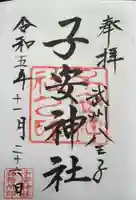 奉拝
武州八王子
子安神社
令和五年十一月二十六日